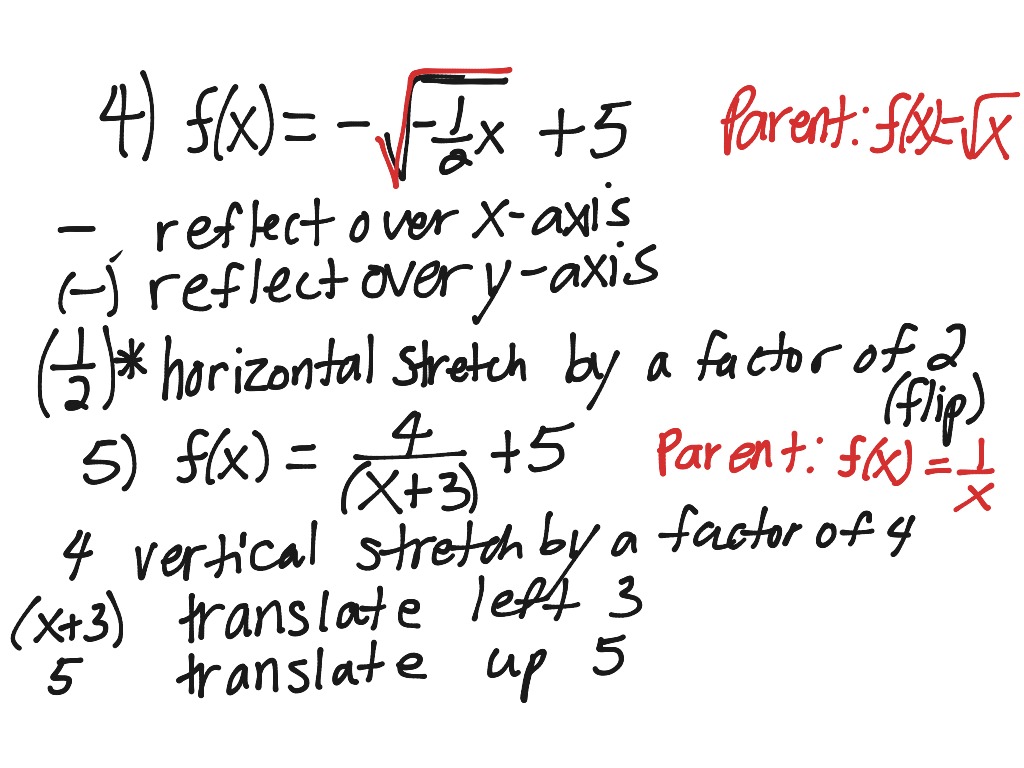 4) f(x) = -√(-1/2 x) + 5 Parent: f(x)=√x
- reflect over x-axis
(-) reflect over y-axis
(1/2)* horizontal stretch by a factor of 2
(flip)
5) f(x) = 4/(x+3) + 5 Parent: f(x) = 1/x
4 vertical stretch by a factor of 4
(x+3) translate left 3
5 translate up 5